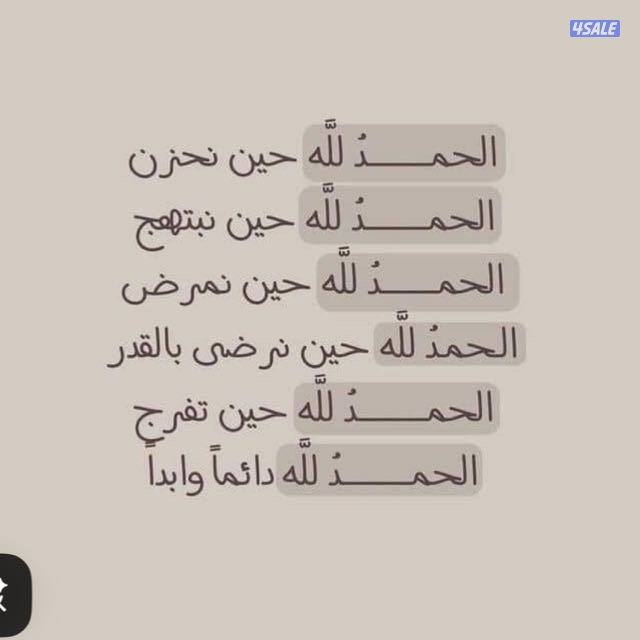 4SALE
الحمـــــدُ للَّه حين نحزن
الحمـــــدُ للَّه حين نبتهج
الحمـــــدُ للَّه حين نمرض
الحمدُ للَّه حين نرضى بالقدر
الحمـــــدُ للَّه حين تفرج
الحمـــــدُ للَّه دائماً وابداً